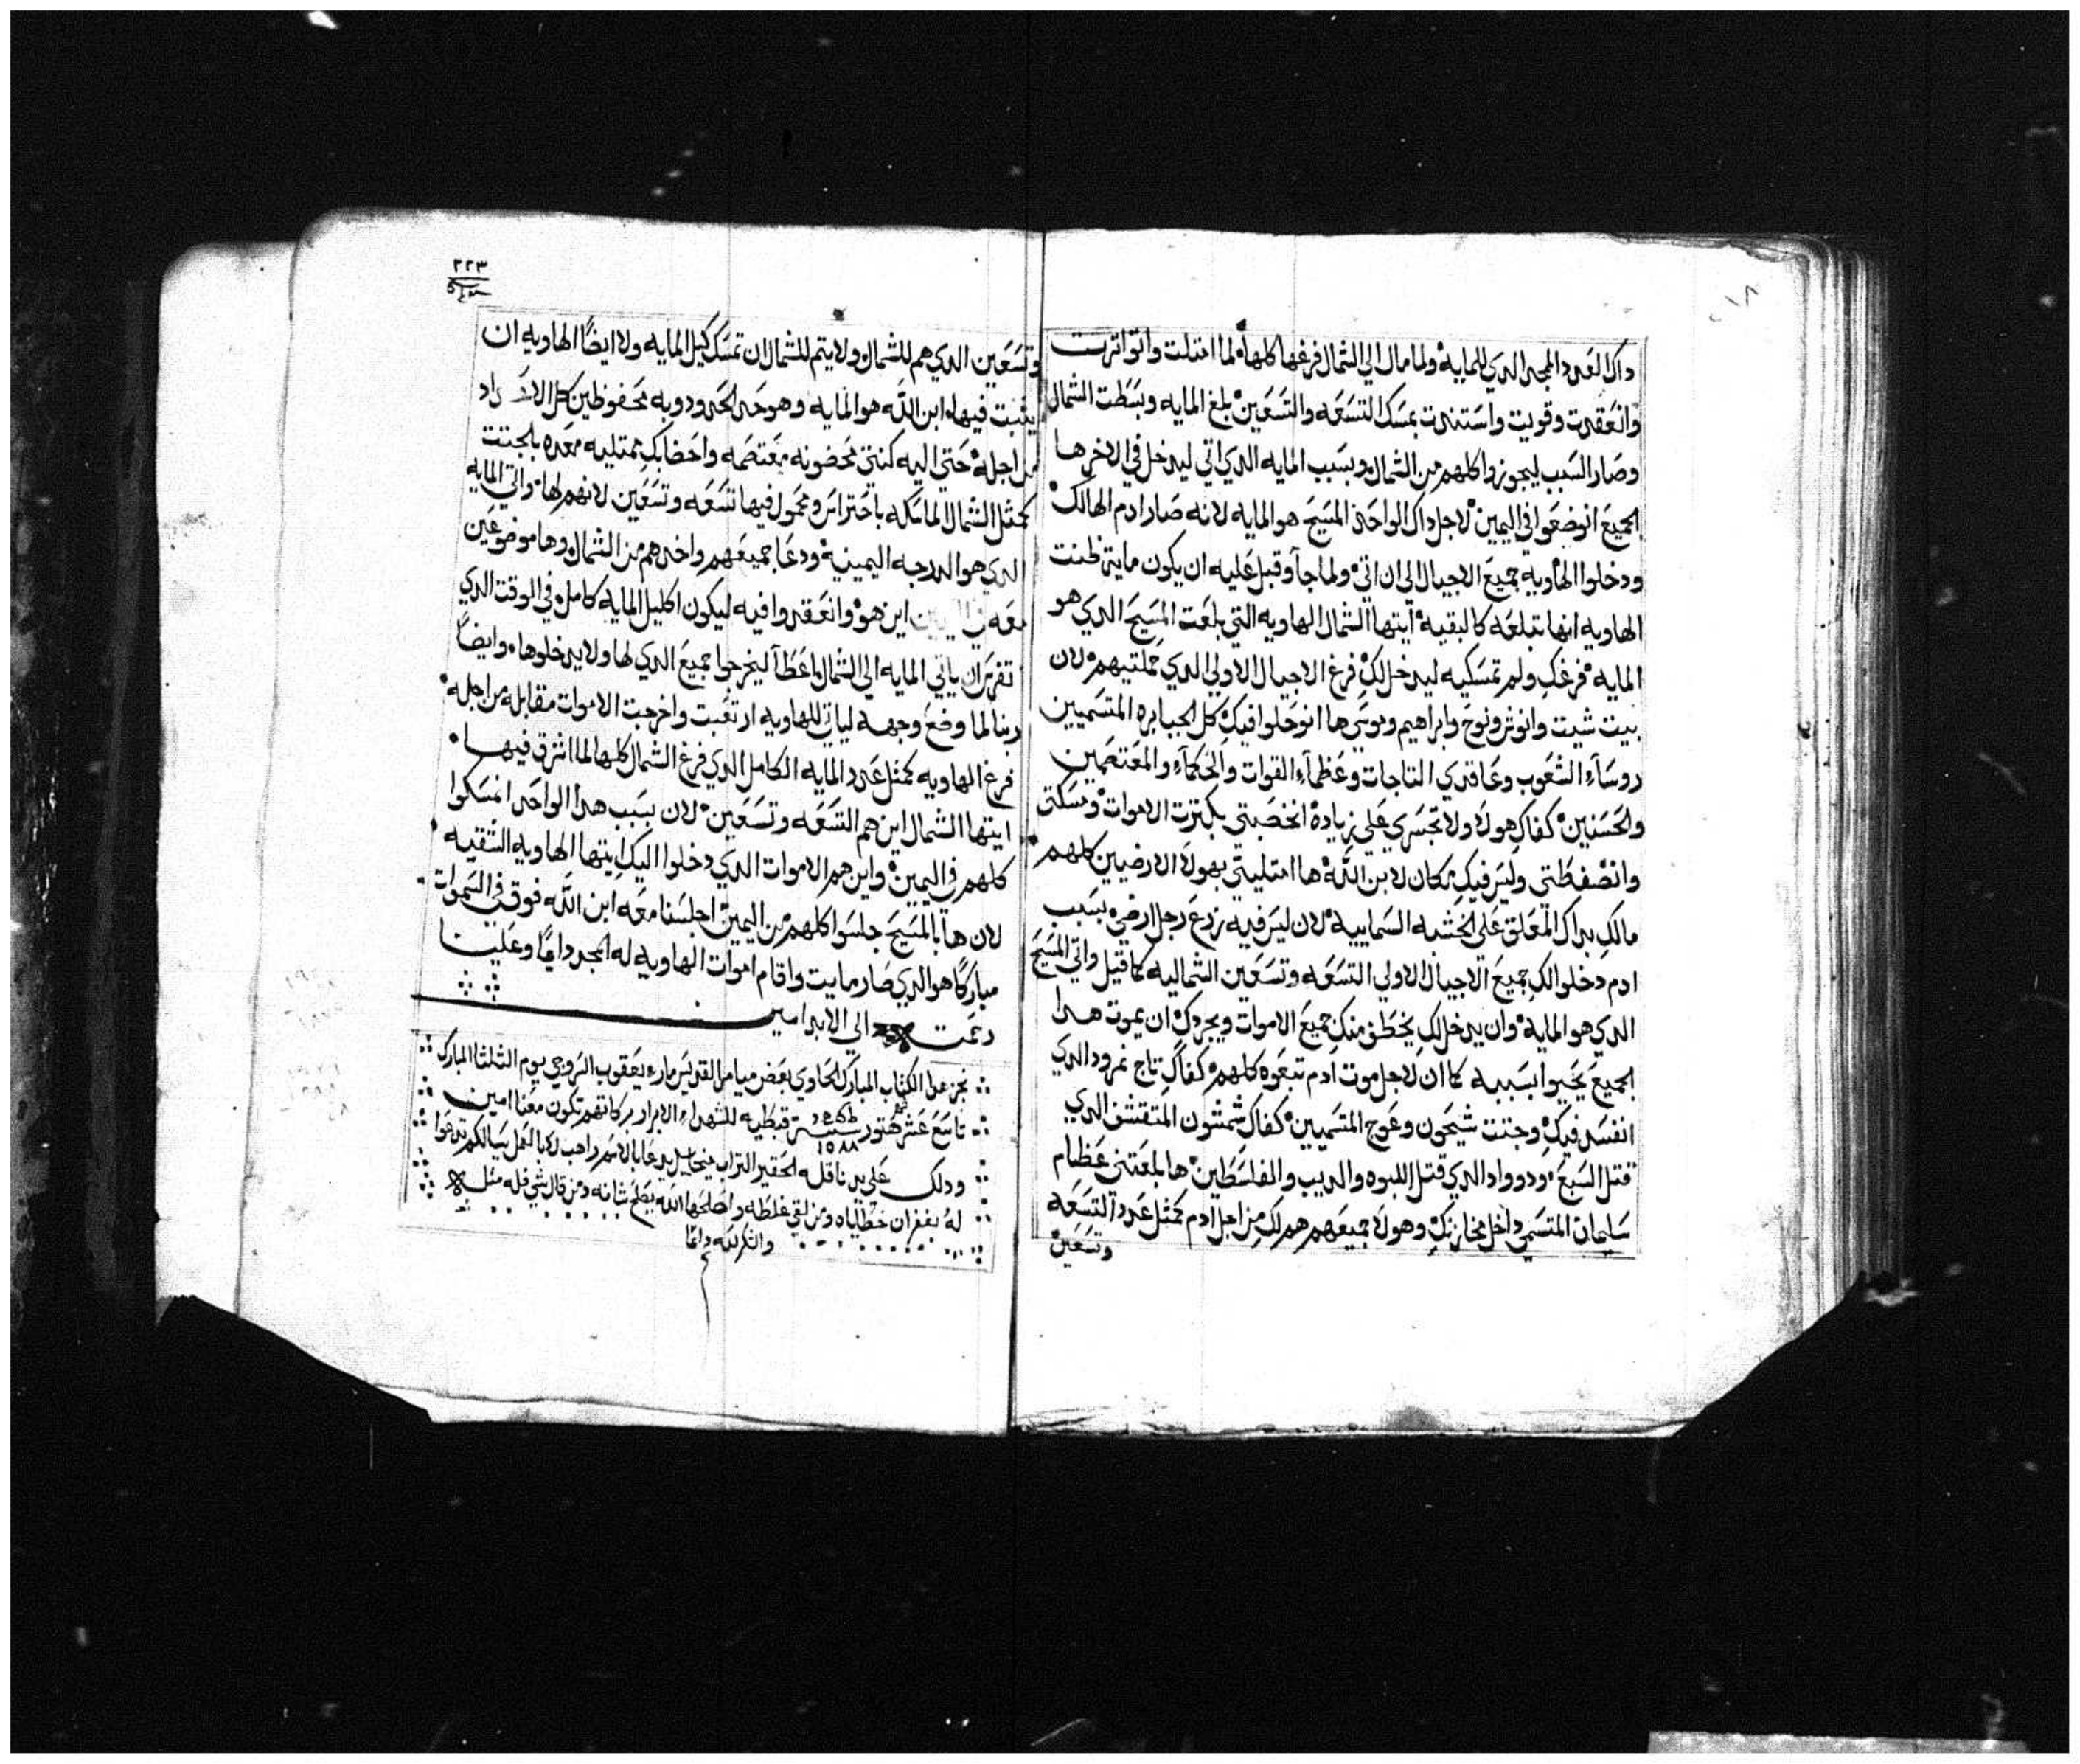 داك العدد المجد الدي للمايه ولما مال الي الشمال فرغها كلها لما امتلت واتواترت
وانعقدت وقويت واستندت بمسك التسعه والتسعين بلغ المايه وبسطت الشمال
وصار السبب ليجوزوا كلهم من الشمال وبسبب المايه الدي اتي ليدخل في الاخر ها
الجميع انوضعوا في اليمين لاجل داك الواحد المسيح هو المايه لانه صار ادم الهالك
ودخلوا الهاويه جميع الاجيال الي ان اتي ولما جآ وقبل عليه ان يكون مايت ظنت
الهاويه انها تبلعه كالبقيه ايتها الشمال الهاويه التي بلعت المسيح الدي هو
المايه فرغك ولم تمسكيه ليدخل لك فرغ الاجيال الاولي الدي مملتيهم لان
بيت شيت وانوش ونوح وابراهيم وموسي ها انوحلوا فيك كل الجبابره المتسميين
روسآء الشعوب وعاقدي التاجات وعظمآء القوات والحكمآء والمعتصمين
والحسنين كفاك هولا ولا تجسري علي زياده انخصبتي بكترت الاموات ومسكتي
وانضغطتي وليس فيك مكان لابن الله ها امتليتي بهولا الارضيين كلهم
مالك بداك المعلق علي الخشبه السماييه لان ليس فيه زرع رجل ارضي بسبب
ادم دخلوا لك جميع الاجيال الاولي التسعه وتسعين الشماليه كما قيل واتي المسيح
الدي هو المايه وان يدخل لك يخطف منك جميع الاموات ويجردك ان يموت هدا
الجميع يحيوا بسببه كما ان لاجل موت ادم تبعوه كلهم كفاك تاج نمرود الدي
انفسد فيك وجتت شيحون وعوج المتسميين كفاك شمشون المتقشف الدي
قتل السبع ودوواد الدي قتل اللبوه والديب والفلسطين ها بلعتي عظام
سليمان المتسمي داخل مخازنك وهولا جميعهم هم لك من اجل ادم كمتل عدد التسعه
وتسعين
٢٢٣
وتسعين الدي هم للشمال ولا يتم للشمال ان تمسك كيل المايه ولا ايضا الهاويه ان
يتبت فيها ابن الله هو المايه وهو حد الحدود وبه محفوظين كل
من اجله حتي اليه كنتي محضونه معتصمه واحضانك ممتليه معده بالجتت
كمتل الشمال الماسكه باحتراس ومحمول فيها تسعه وتسعين لانهم لها واتي المايه
الدي هو الدرجه اليمينيه ودعا جميعهم واخدهم من الشمال وها موضوعين
معه اين هو وانعقدوا فيه ليكون اكليل المايه كامل في الوقت الدي
تقرر ان ياتي المايه الي الشمال واعطا ليخرجوا جميع الدي لها ولا يدخلوها وايضا
ربنا لما وضع وجهه لياتي للهاويه ارتعبت واخرجت الاموات مقابله من اجله
فرغ الهاويه كمتل عدد المايه الكامل الدي فرغ الشمال كلها لما اشرق فيها
ايتها الشمال اين هم التسعه وتسعين لان بسبب هدا الواحد انمسكوا
كلهم في اليمين واين هم الاموات الدي دخلوا اليك ايتها الهاويه الشقيه
لان ها بالمسيح جلسوا كلهم من اليمين اجلسنا معه ابن الله فوق في السموات
مباركا هو الدي صار مايت واقام اموات الهاويه له المجد دايما وعلينا
رحمت الي الابد امين
نجز هدا الكتاب المبارك الحاوي بعض ميامر القديس ماري يعقوب السروجي يوم التلتا المبارك
تاسع عشر هتور سنة قبطيه للشهداء الابرار بركاتهم تكون معنا امين
١٥٨٨
ودلك علي يد ناقله الحقير التراب ميخاييل يدعا بالاسم راهب لا بالعمل يسالكم تدعوا
له بغفران خطاياه ومن لقي غلطه واصلحها الله يصلح شانه ومن قال شي فله متل
والشكر لله دائما